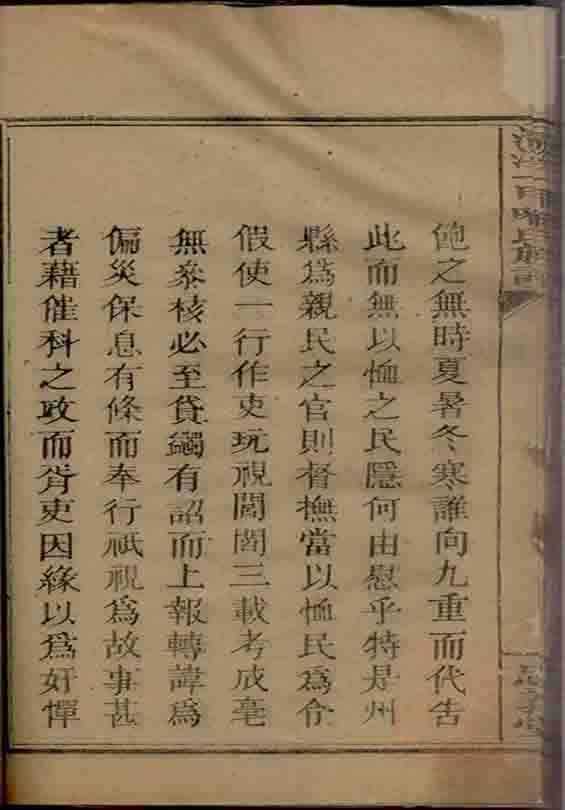 飽之無時夏暑冬寒誰向九重而代告
此而無以恤之民隱何由慰乎特是州
縣爲親民之官則督撫當以恤民爲令
假使一行作吏玩視閭閻三載考成毫
無叅核必至貸蠲有詔而上報轉諱爲
偏災保息有條而奉行祇視爲故事甚
者藉催科之政而胥吏因緣以爲奸憚